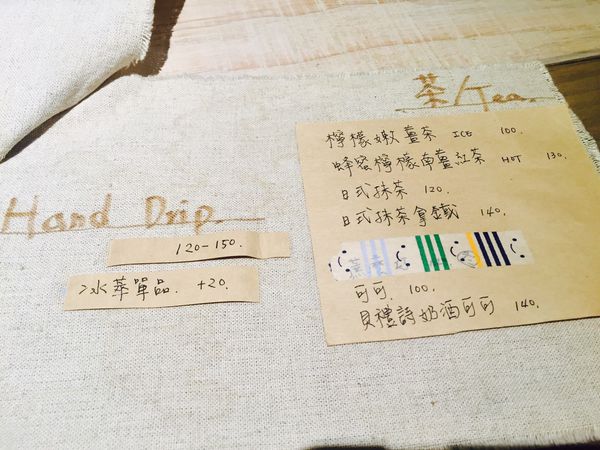 茶/Tea.
檸檬嫩薑茶 ICE 100.
蜂蜜檸檬南薑紅茶 HOT 130.
日式抹茶 120.
日式抹茶拿鐵 140.
可可. 100.
貝禮詩奶酒可可 140.
Hand Drip.
120-150.
冰萃單品. +20.